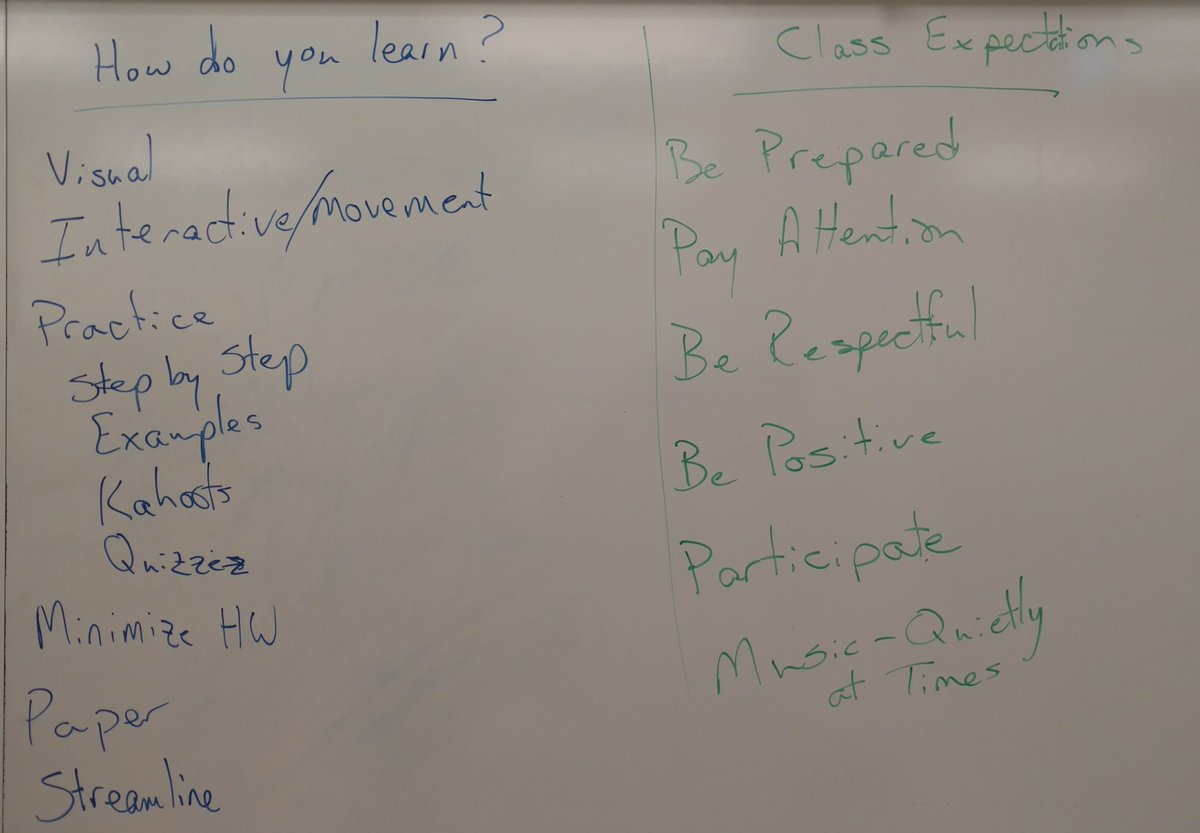 How do you learn?
Visual
Interactive/movement
Practice
Step by Step
Examples
Kahoots
Quizziz
Minimize HW
Paper
Streamline
Class Expectations
Be Prepared
Pay Attention
Be Respectful
Be Positive
Participate
Music-Quietly
at Times